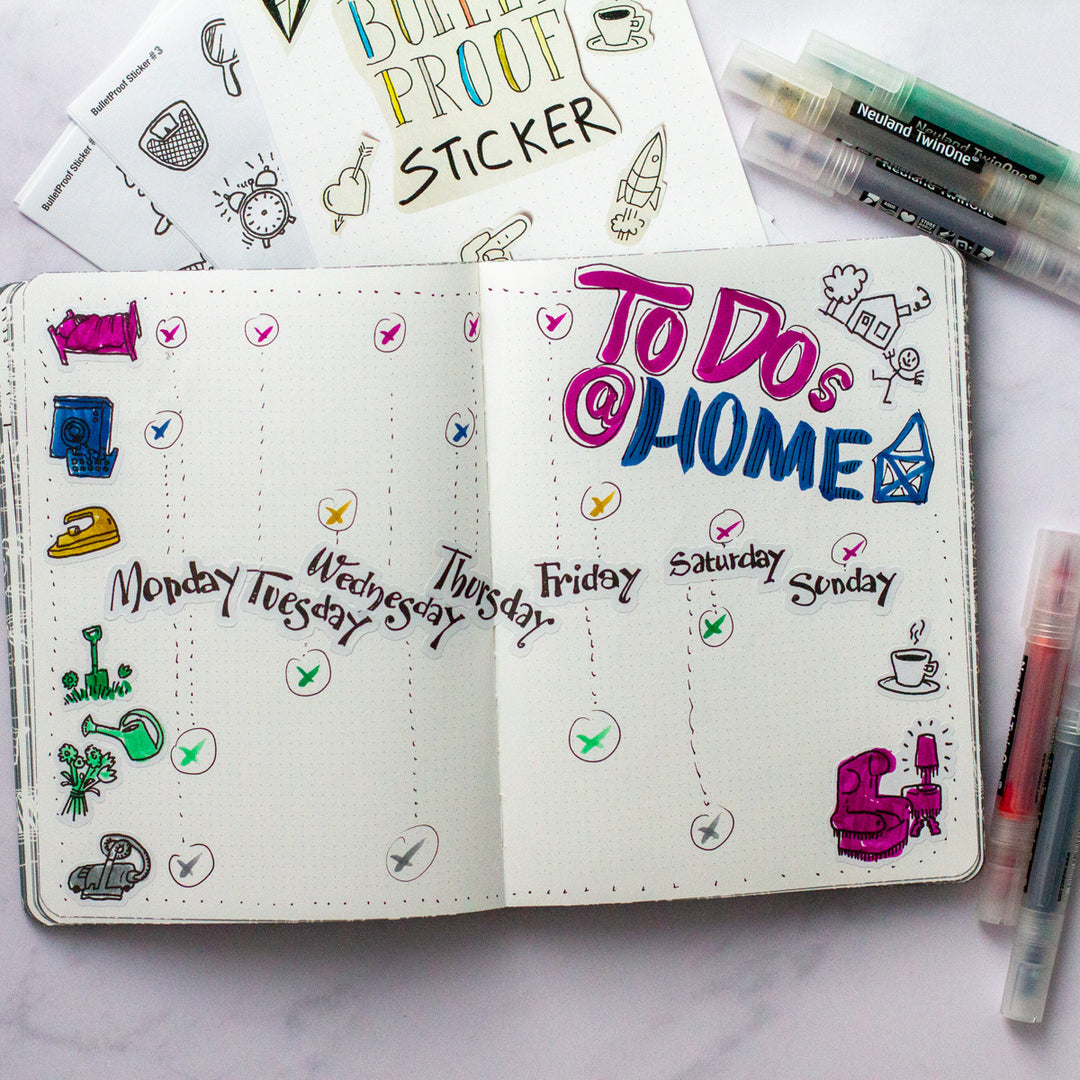 BulletProof Sticker #3
BulletProof Sticker #
BULLET
PROOF
STICKER
Neuland TwinOne®
Neuland TwinOne®
Neuland TwinOne®
TO DOs
@HOME
Monday Tuesday Wednesday Thursday Friday Saturday Sunday